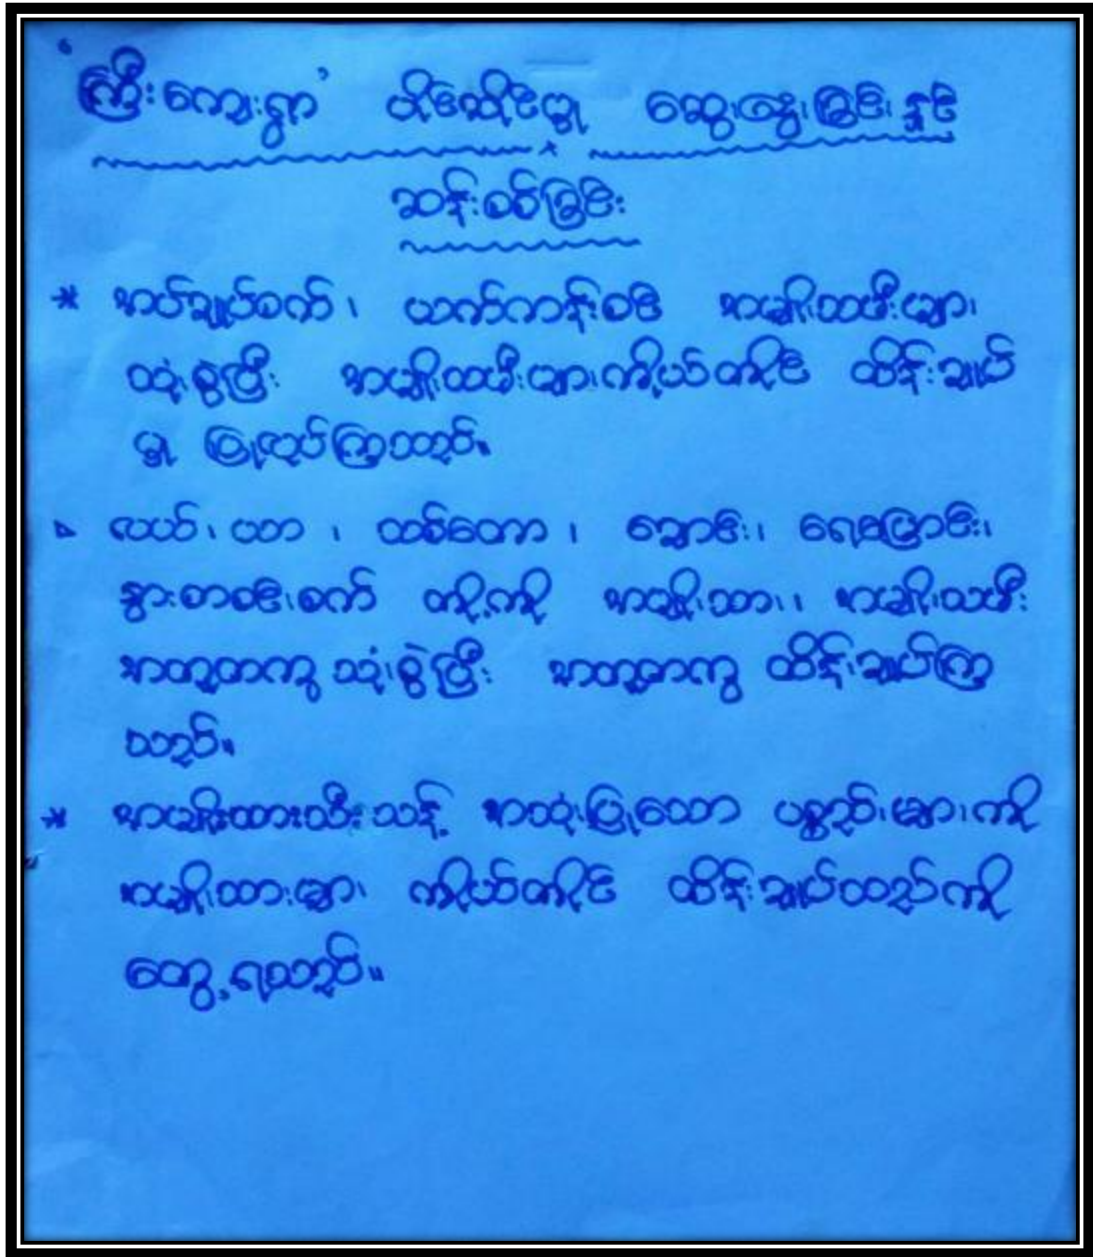 'ကြီးကျေးရွာ' ပိုင်ဆိုင်မှု ဆွေးနွေးခြင်းနှင့်
ဆန်းစစ်ခြင်း
* အပ်ချုပ်စက်၊ ယက်ကန်းစင် အမျိုးသမီးများ
သုံးစွဲပြီး အမျိုးသမီးများကိုယ်တိုင် ထိန်းချုပ်
မှု ပြုလုပ်ကြသည်။
လယ်၊ ယာ၊ သစ်တော၊ ချောင်း၊ ရေမြောင်း၊
နွားစာစဉ်းစက် တို့ကို အမျိုးသား၊ အမျိုးသမီး
အတူတကွ သုံးစွဲပြီး အတူတကွ ထိန်းချုပ်ကြ
သည်။
* အမျိုးသားသီးသန့် အသုံးပြုသော ပစ္စည်းများကို
အမျိုးသားများ ကိုယ်တိုင် ထိန်းချုပ်သည်ကို
တွေ့ရသည်။